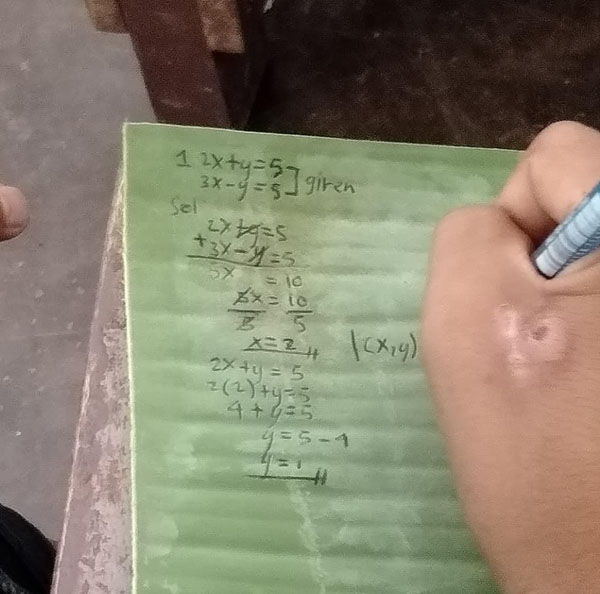 1 2x+y=5
3x-y=5] given
Sol
2x+y=5
+3x-y=5
5x = 10
5x = 10
5 5
x=2
|(x,y)
2x+y = 5
2(2)+y=5
4+y=5
y=5-4
y=1